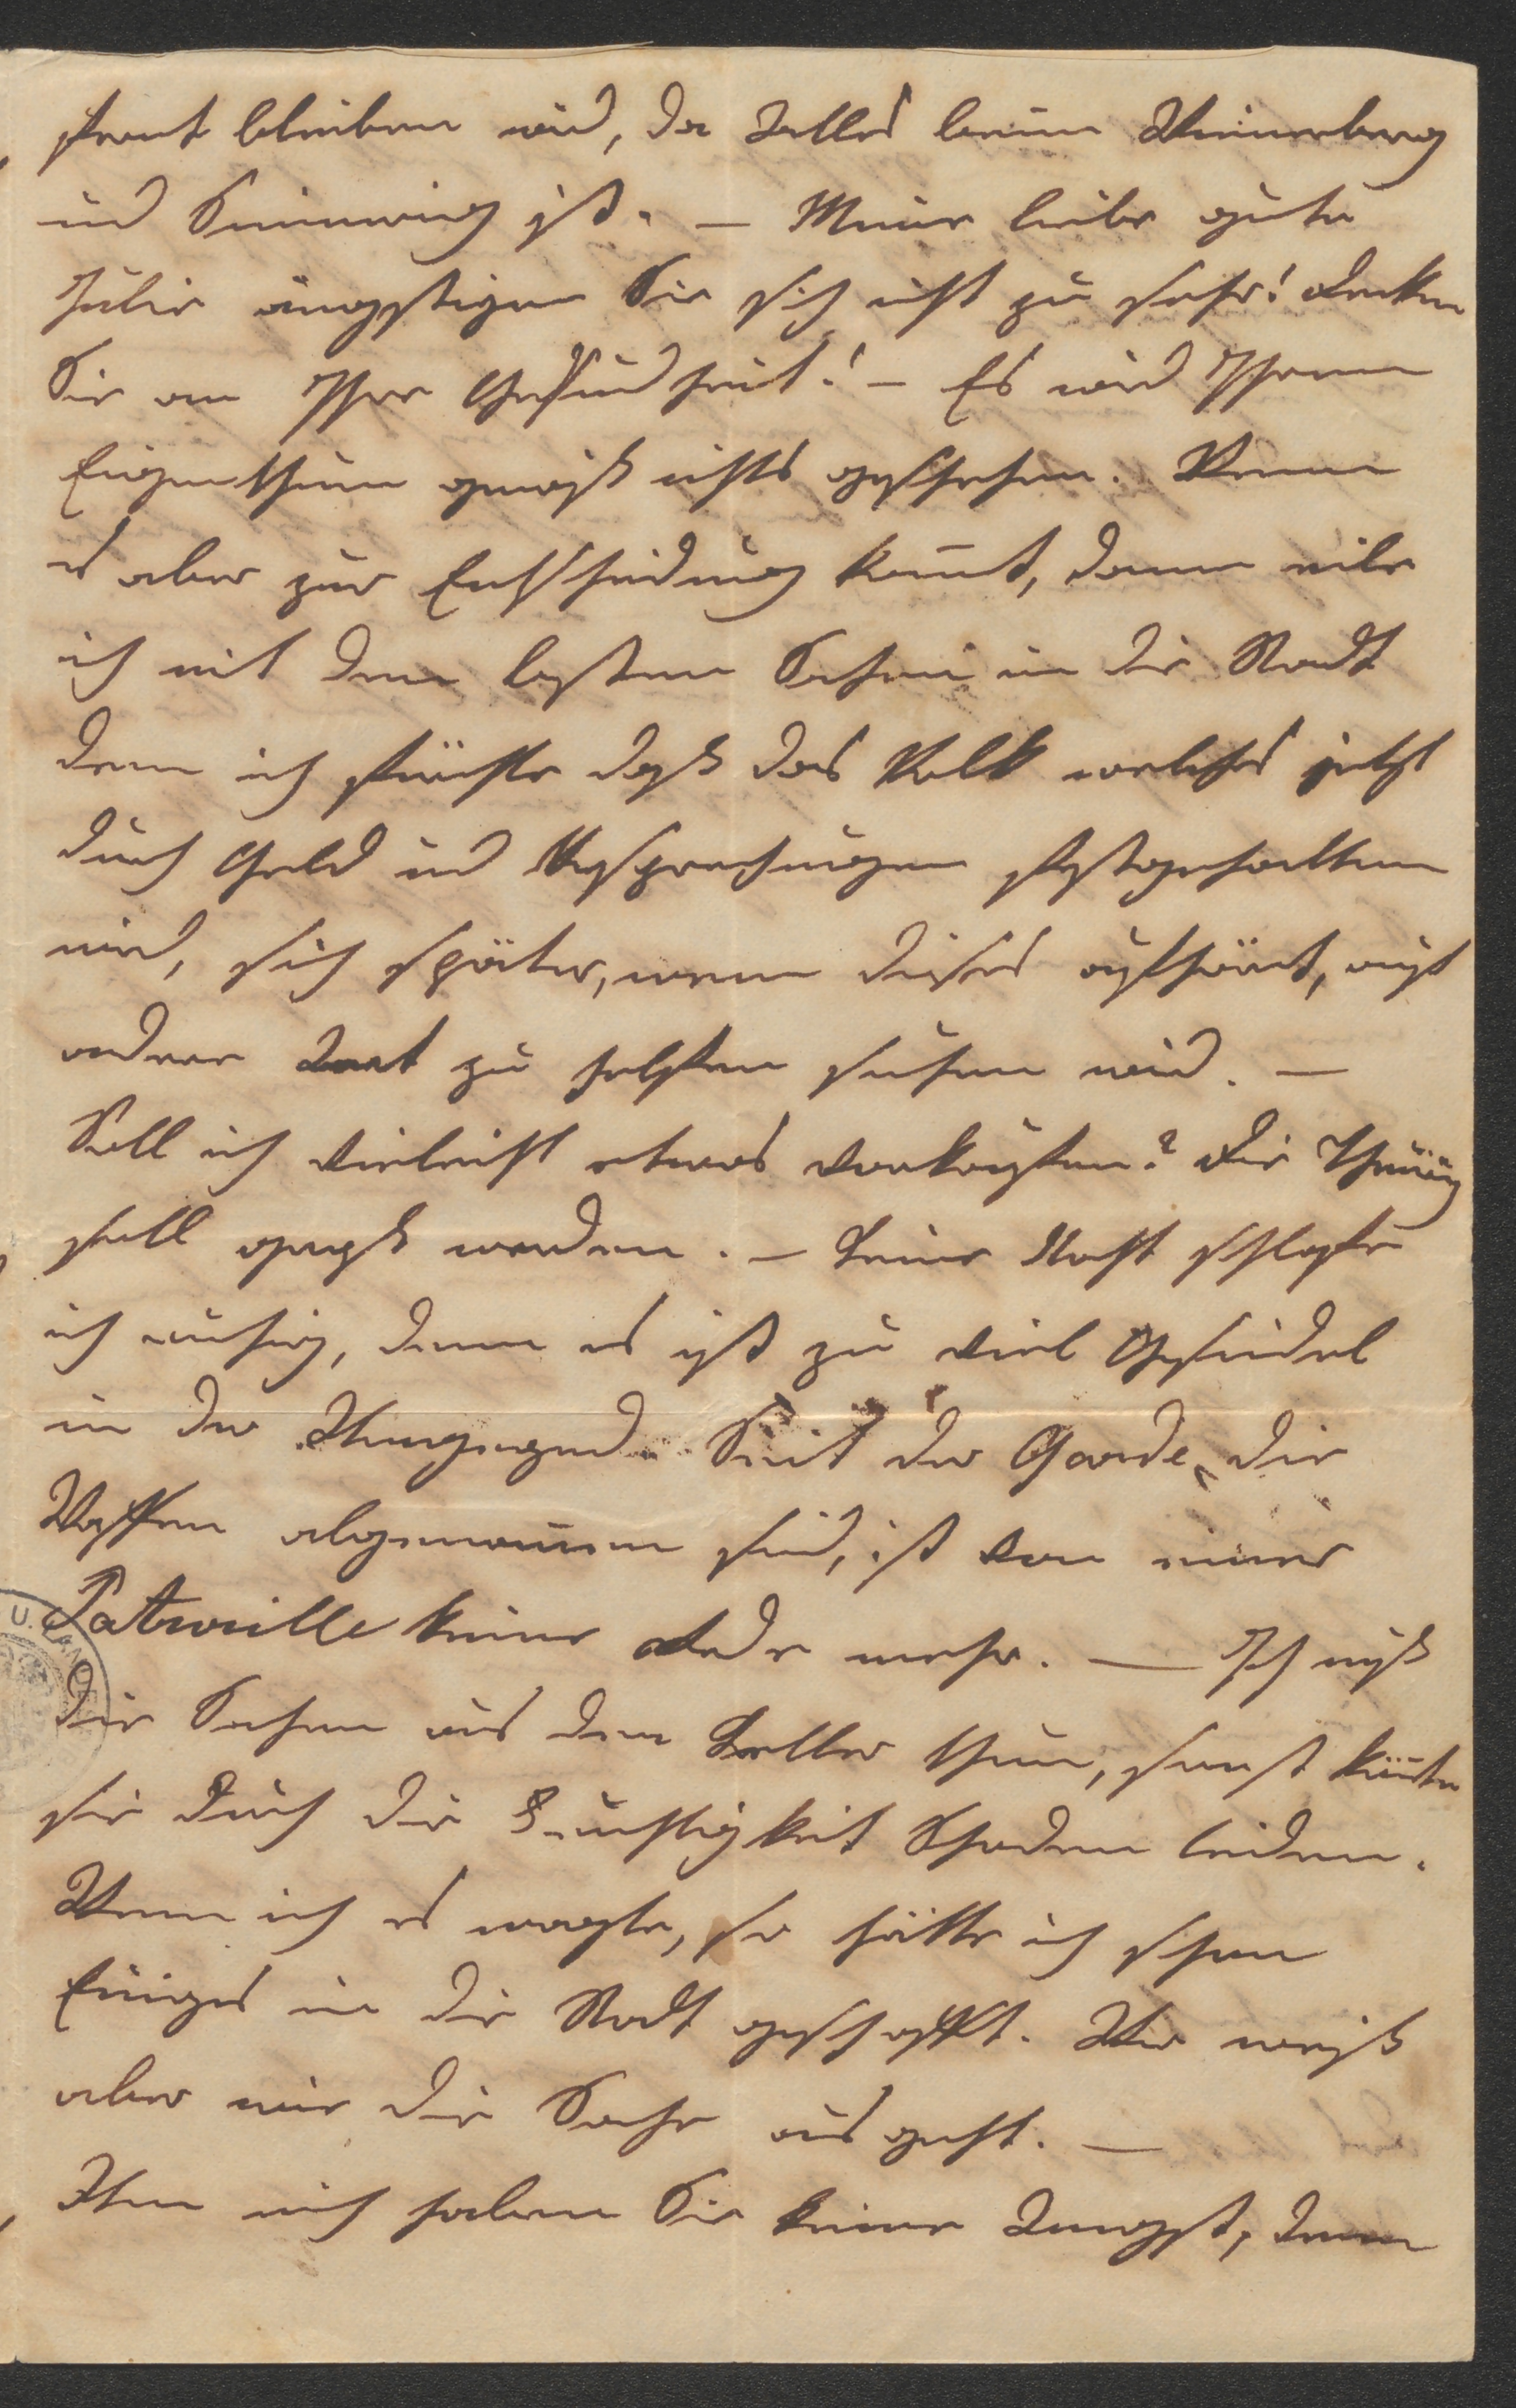 fernt bleiben wird, da Alles beim Wienerberg
und Simmering ist. — Meine liebe gute
Julie ängstigen Sie sich nicht zu sehr! denken
Sie an Ihre Gesundheit! — Es wird Ihrem
Eigenthum gewiß nichts geschehen. Wenn
es aber zur Entscheidung kom̅t, dann eile
ich mit den besten Sachen in die Stadt
denn ich fürchte daß das Volk welches jetzt
durch Geld und Versprechungen festgehalten
wird, sich später, wenn dieses aufhört, auf
andere Art zu helfen suchen wird. —
Soll ich vieleicht etwas verkaufen? die
soll groß werden. — Keine Nacht schlafe
ich ruhig, denn es ist zu viel Gesindel
in der Umgegend. Seit der Garde die
Waffen abgenom̅en sind, ist von einer
Patrouille keine Rede mehr. — Ich muß
die Sachen aus dem Keller thun, sonst kön̅ten
sie durch die Feuchtigkeit Schaden leiden.
Wenn ich es wagte, so hätte ich schon
Einiges in die Stadt geschafft. Wer weiß
aber wie die Sache ausgeht. —
Um mich haben Sie keine Angst, denn